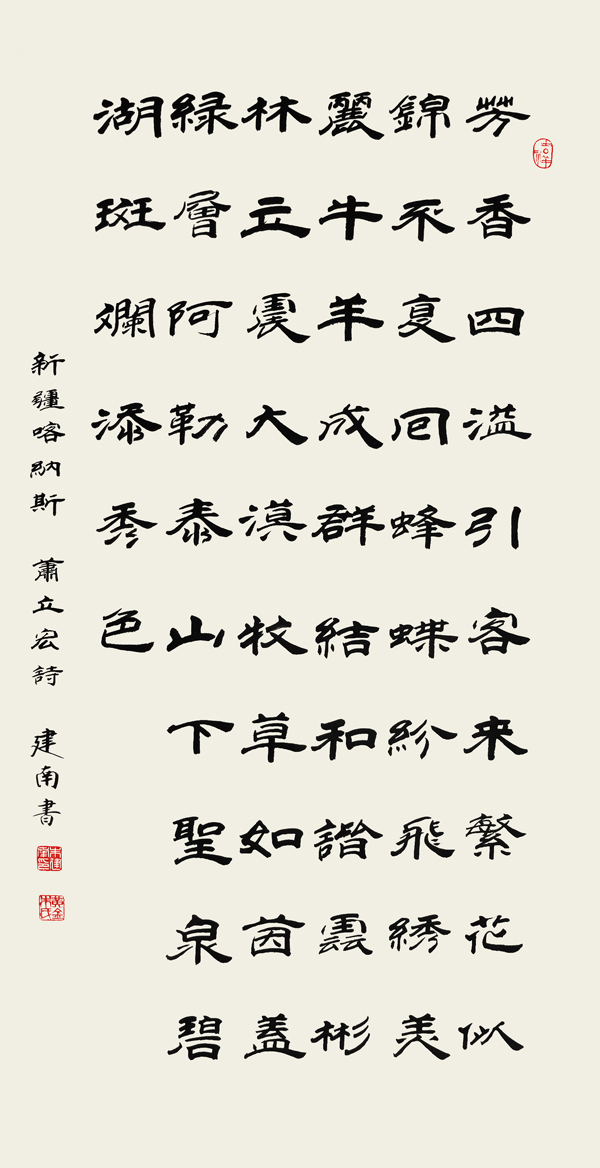 芳香四溢引客来繁花似
錦不复回蜂蝶紛飛綉美
麗牛羊成群結和諧雲彬
林立震大漠牧草如茵蓋
緑層阿勒泰山下聖泉碧
湖斑斕添秀色
新疆喀納斯 蕭立宏詩 建南書